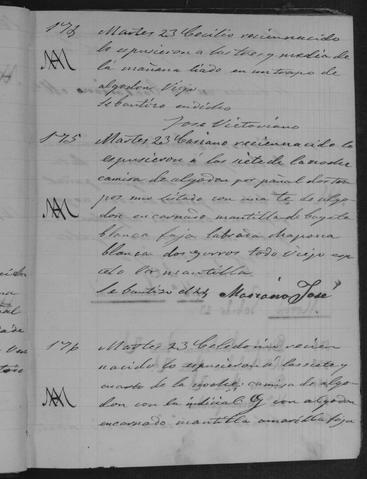 174 Martes 23 Cecilio recien nacido
lo expusieron a las tres y media de
la mañana liado en un trapo de
algodon viejo
se bautizo en dicho
Jose Victoriano
175 Martes 23 Casiano recien nacido lo
expusieron á las siete de la noche
camisa de algodon por pañal dos tra
pos uno listado con una de algo
don encarnado mantilla de bayeta
blanca faja labrada
blanca dos gorros todo viejo
mantilla
se bautizo el 24 Mariano José
176 Martes 23 Celedonia recien
nacido lo expusieron á las siete y
cuarto de la noche camisa de algo
don con la inicial G con algodon
encarnado mantilla amarilla faja